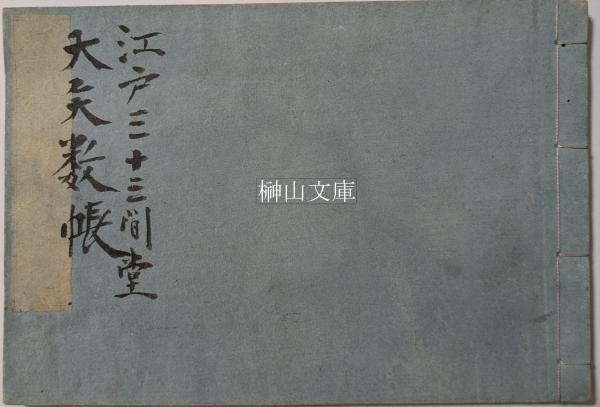 江戸三十三間堂
大矢数帳
榊山文庫